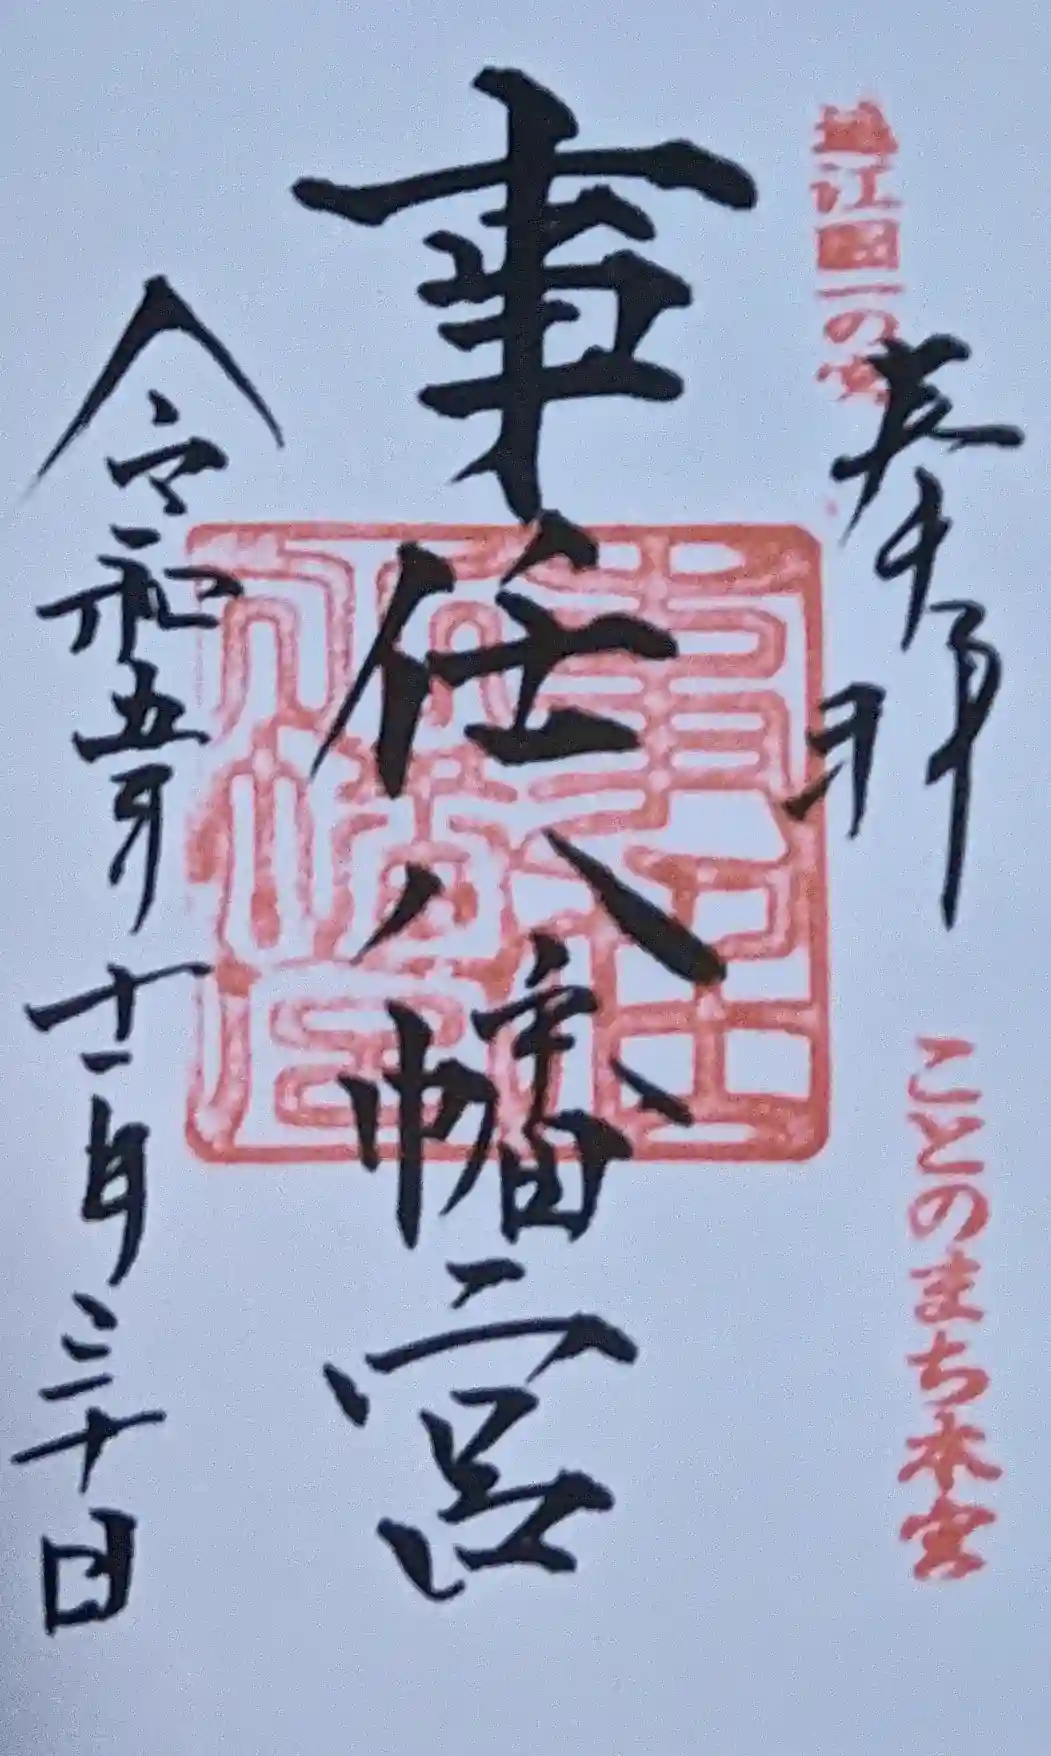 遠江国一の宮
奉拝
ことのまち本宮
事任八幡宮
令和五年
十一月三十日